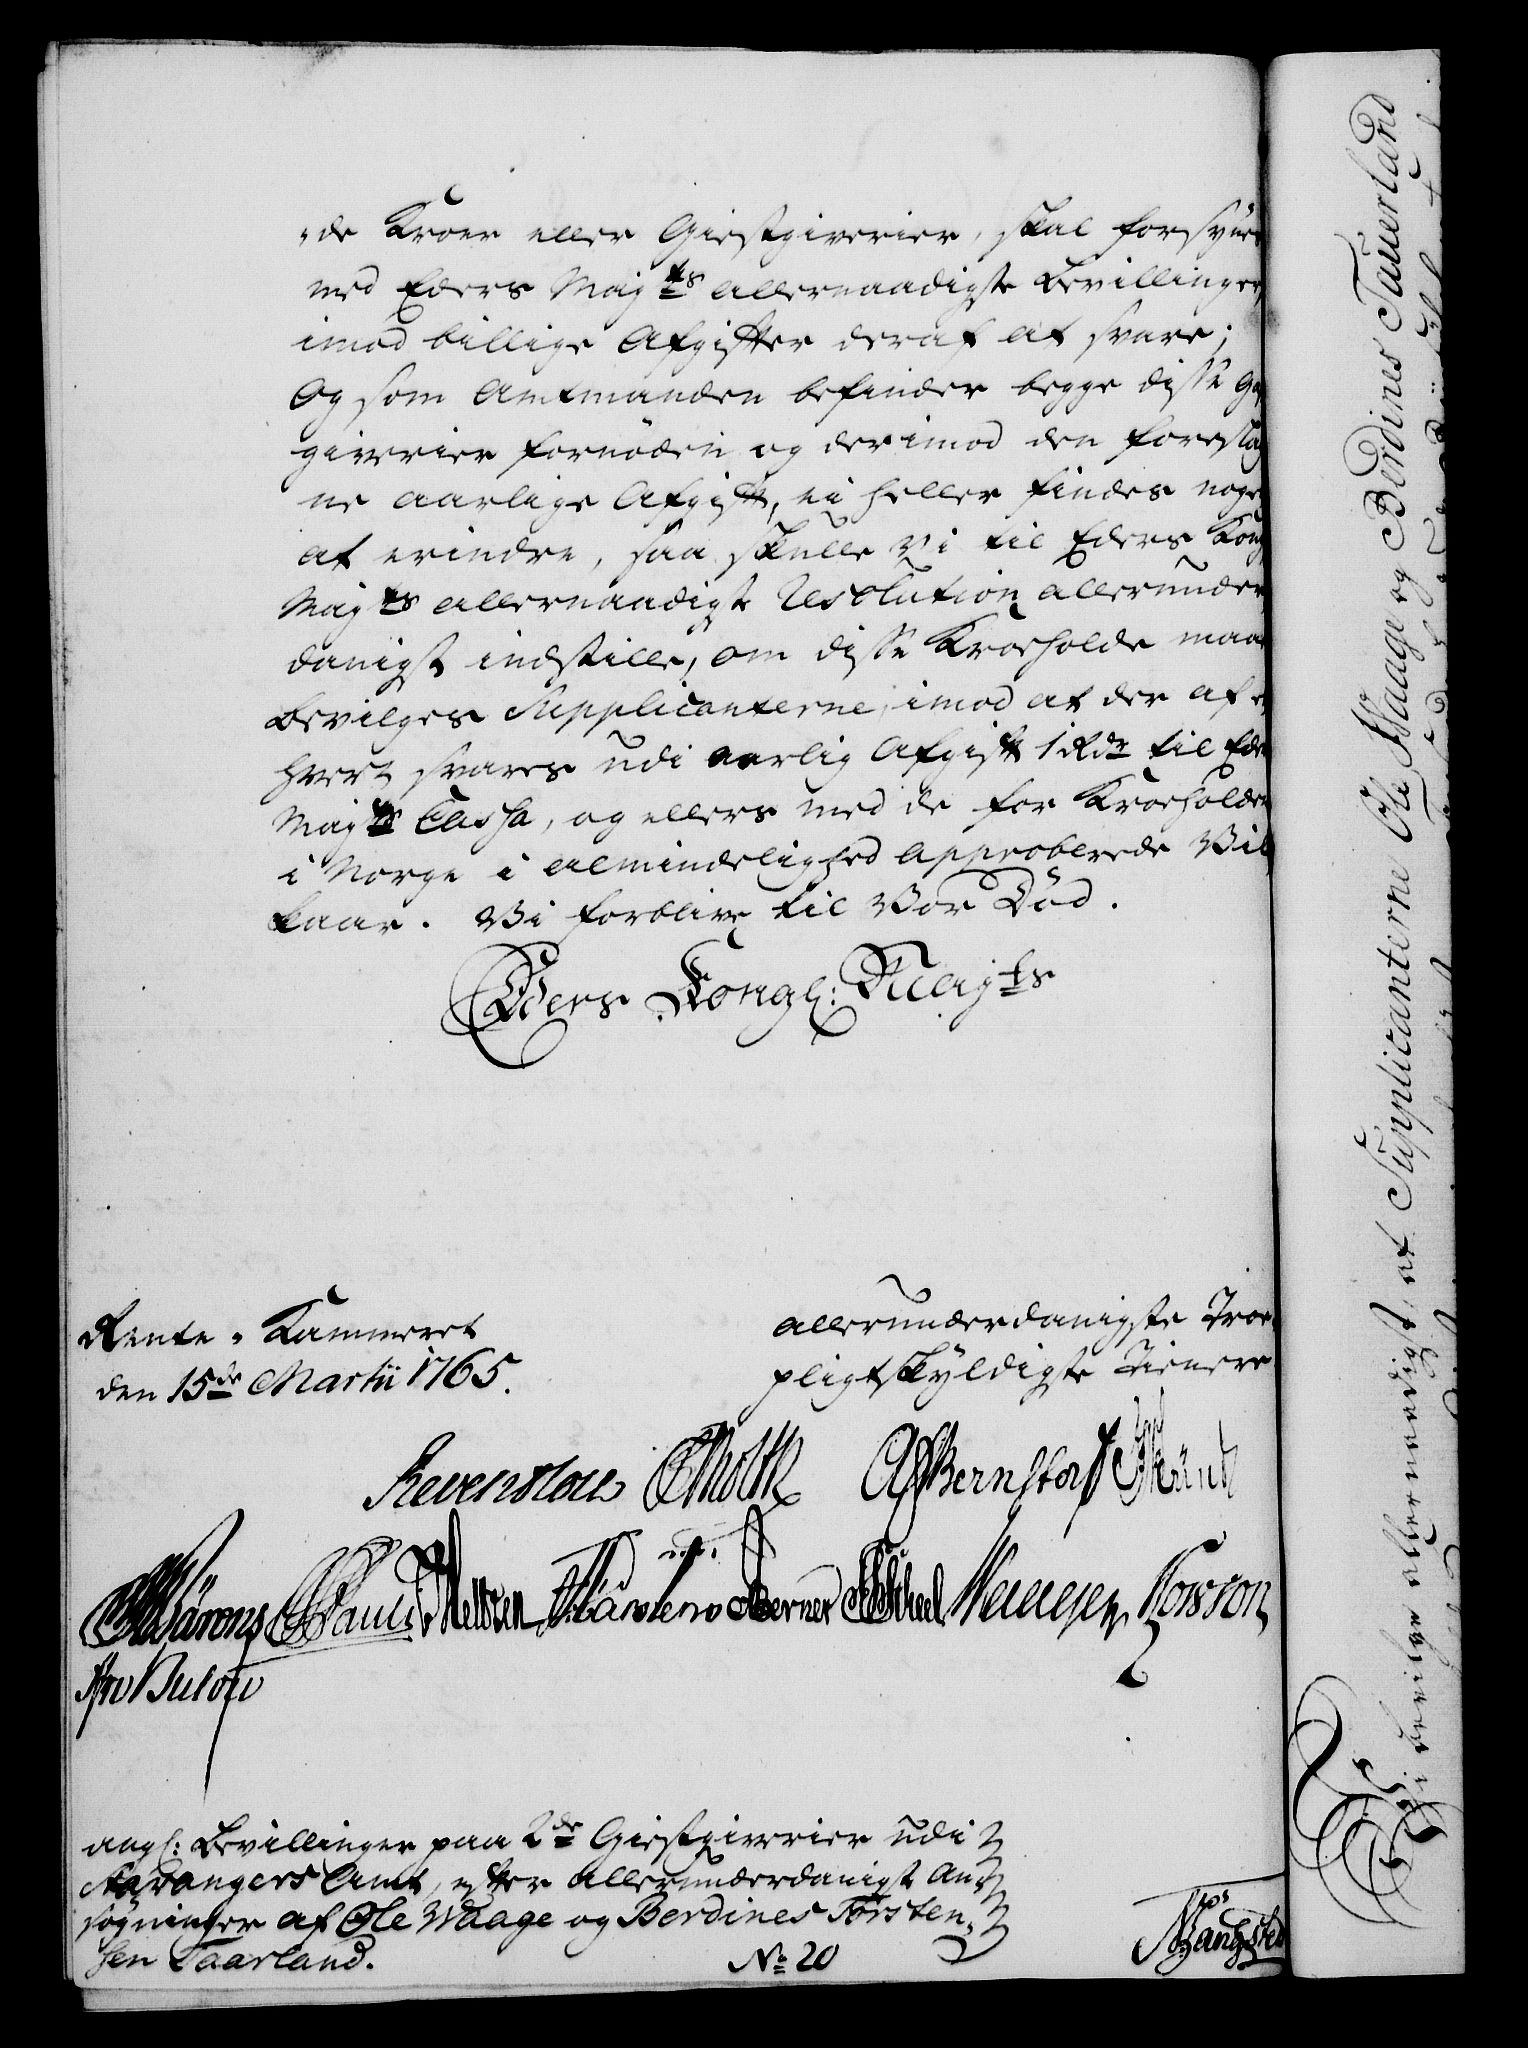 de Kroer eller Giestgiverier, skal forsynes
med Eders Maj.ts allernaadigste Bevillinger,
imod billige Afgifter deraf at svare;
Og som Amtmanden befinder begge disse
giverier fornöden og derimod den foreslag
ne aarlige Afgift, ei heller findes noget
at erindre, saa skulle Vi til Eders Kong
Maj.ts allernaadigste Resolution allerunder
danigst indstille, om disse Kroeholde maae
bevilges Supplicanterne, imod at der af en
hver svares udi aarlig Afgift 1 Rdr til Eders
Maj.ts Cassa, og ellers med de for Kroeholden
i Norge i Almindelighed approberede Vil
kaar. Vi forblive til Vor Död.
Eders Kongl: Maj.ts
Rente-Kammeret
den 15de Martii 1765.
allerunderdanigste Troe
pligtskyldigste Tienere
Reventlow CMoltke AGBernstorff
Knud
Bärens Neltzen Kärstens Berner Scheel Wennesen Rosson
Bulow
angl: Bevillinger paa 2de Giestgiverier udi
Stavangers Amt, efter allerunderdanigst An
søgninger af Ole Waage og Berdines Torsten-
sen Taarland.
No 20
Bangsted
Vi bevilge allernaadigst, at Supplicanterne Ole Waage og Berdines Tauerland